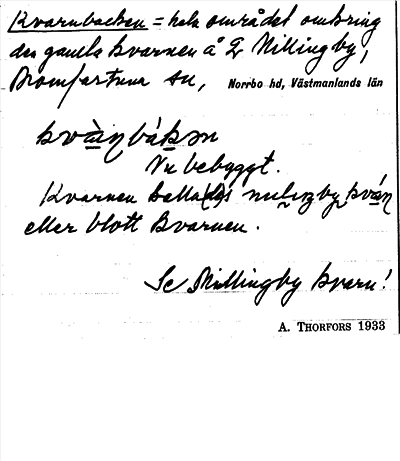 Kvarnbacken = hela området omkring
den gamla kvarnen å Nillingby,
Romfartuna sn, Norrbo hd, Västmanlands län
Nu bebyggt.
Kvarnen kallades
eller blott Kvarnen.
Se Nillingby kvarn!
A. THORFORS 1933